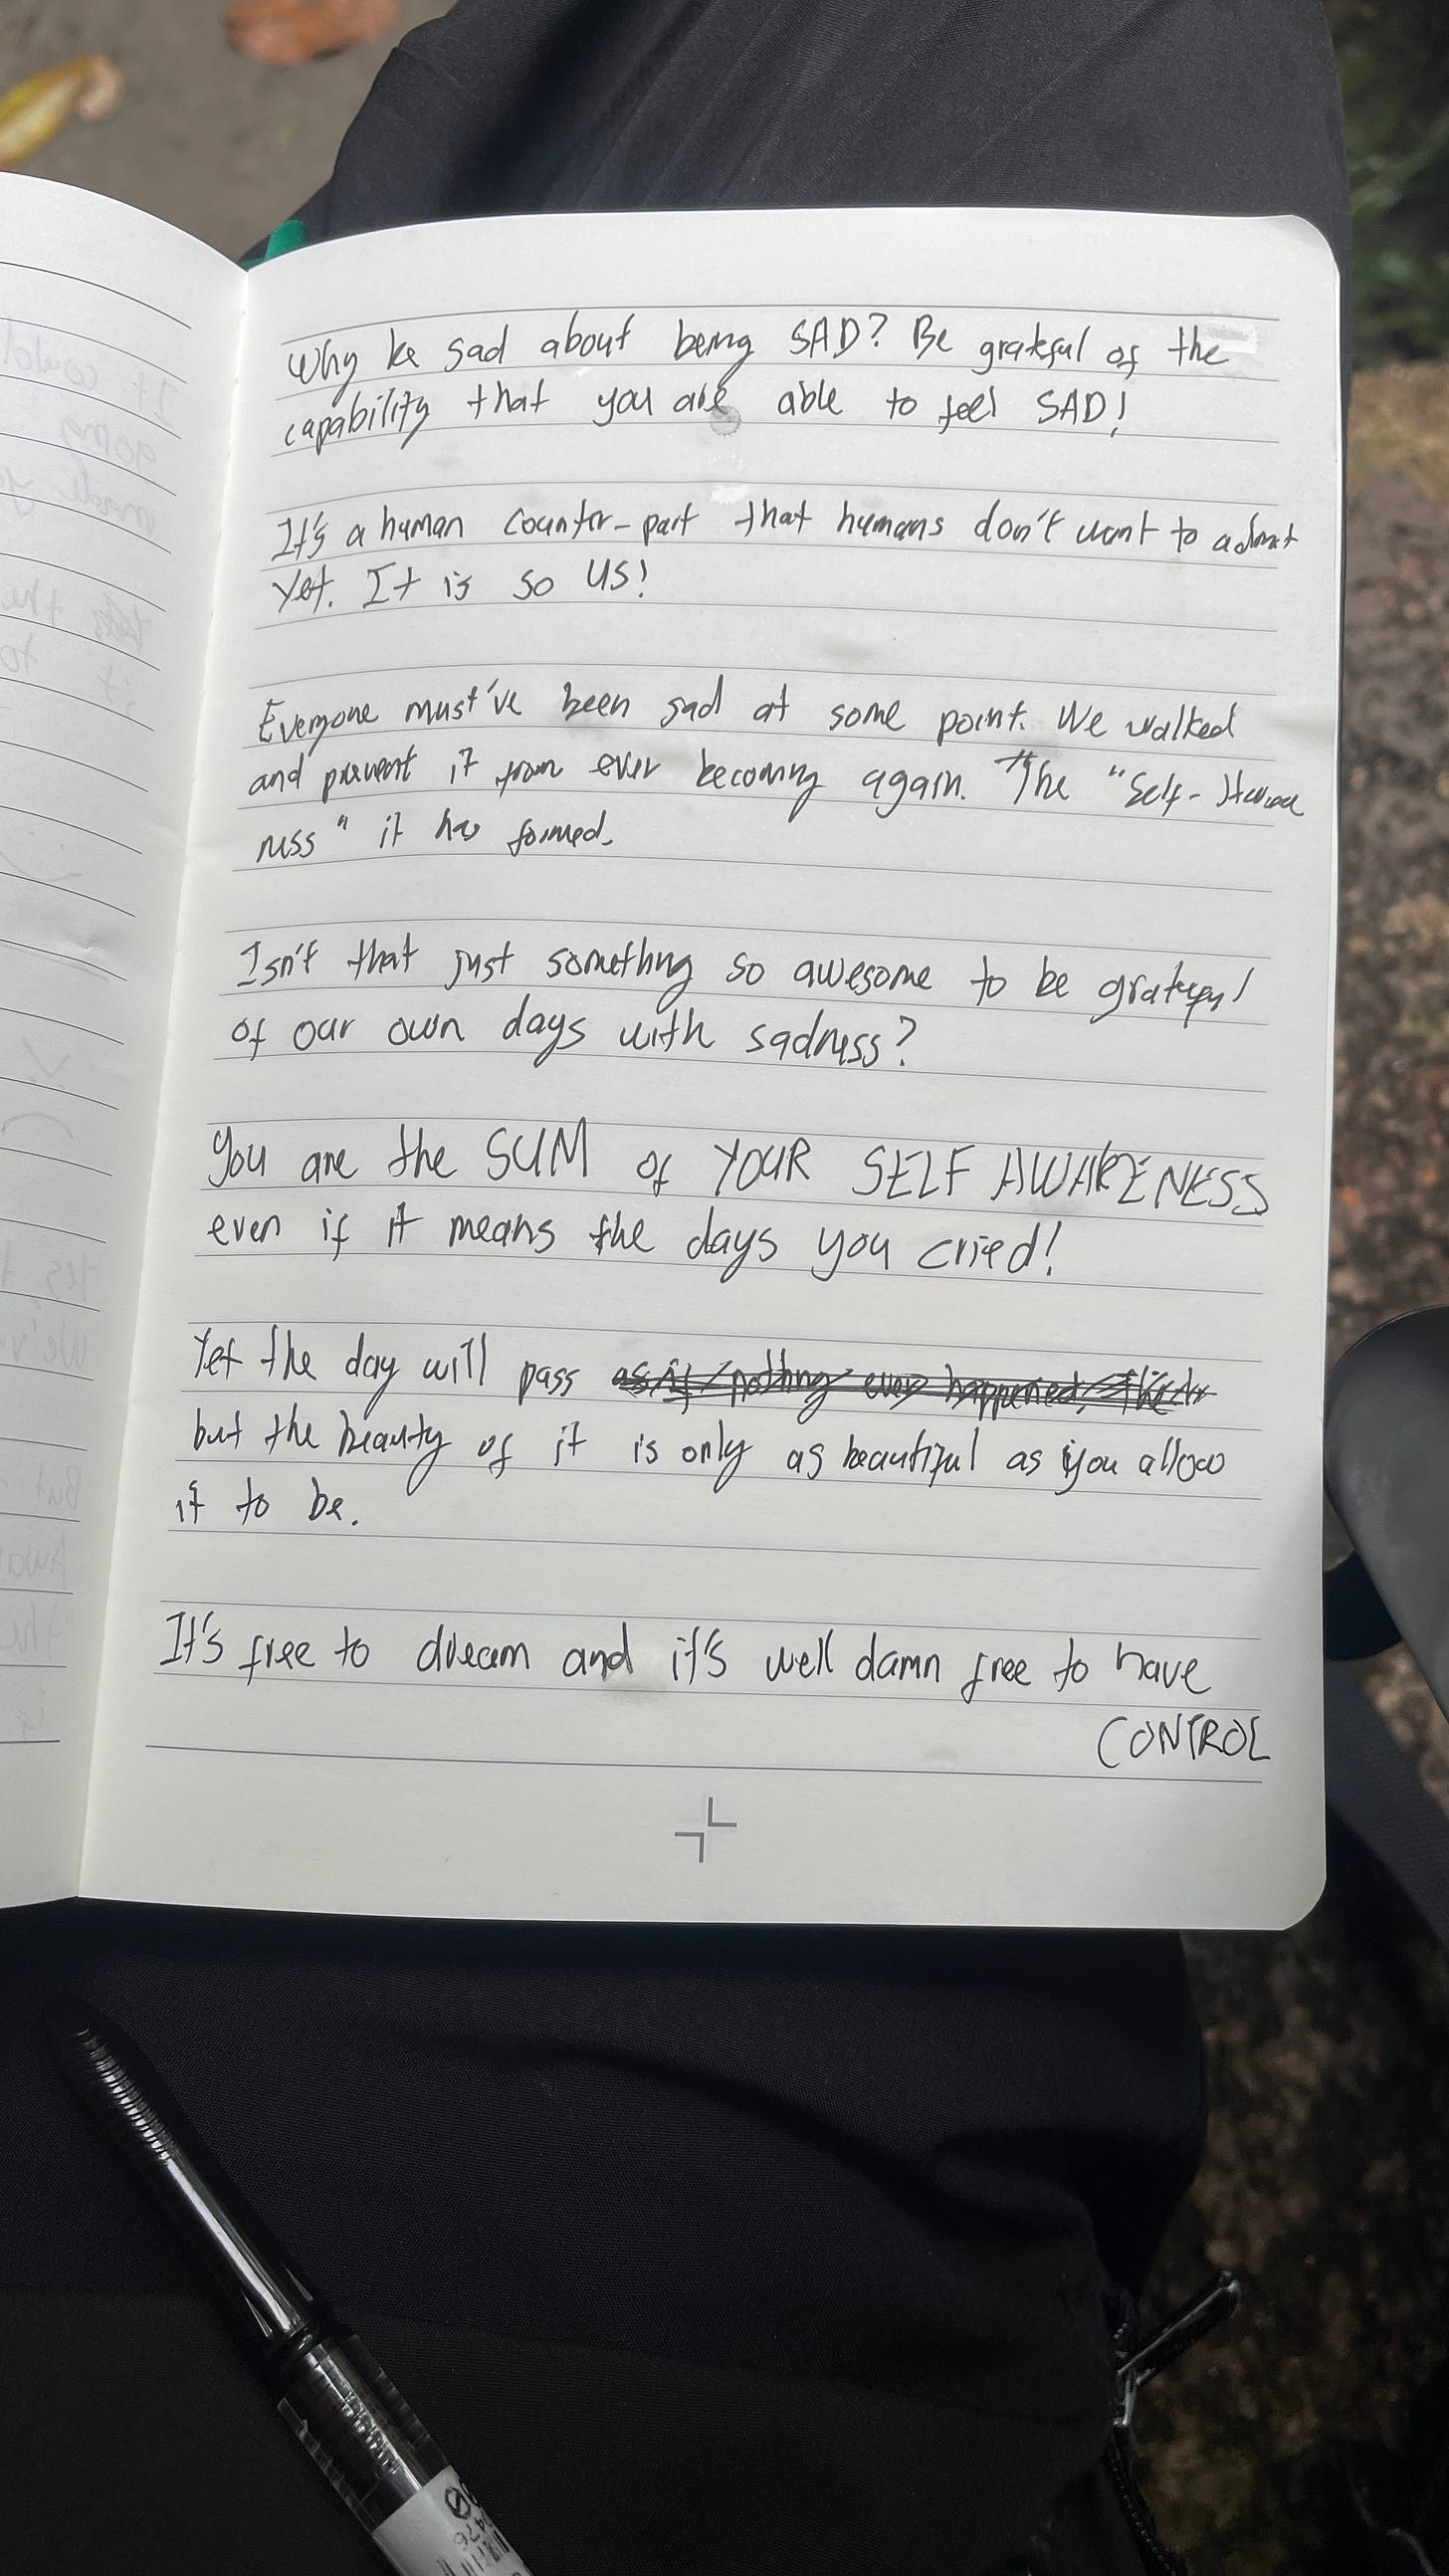 Why be sad about being SAD? Be grateful of the
capability that you are able to feel SAD!
It's a human counter-part that humans don't want to admit
yet. It is so US!
Everyone must've been sad at some point. We walked
and prevent it from ever becoming again. The "Self-Aware
ness" it has formed.
Isn't that just something so awesome to be grateful
of our own days with sadness?
You are the SUM of YOUR SELF AWARENESS
even if it means the days you cried!
Yet the day will pass as if nothing ever happened,
but the beauty of it is only as beautiful as you allow
it to be.
It's free to dream and it's well damn free to have
CONTROL